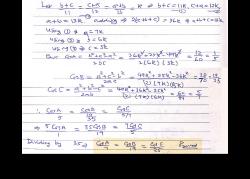 Let b+c/11 = c+a/12 = a+b/13 = k ⇒ b+c=11k, c+a=12k,
a+b=13k adding ⇒ 2(a+b+c) = 36k ⇒ a+b+c=18k
Using ① a=7k
using ② b=6k
using ③ c=5k
cosA = b²+c²-a²/2bc = 36k²+25k²-49k²/2(6k)(5k) = 12/60 = 1/5
cosB = a²+c²-b²/2ac = 49k²+25k²-36k²/2(7k)(5k) = 38/70 = 19/35
cosC = a²+b²-c²/2ab = 49k²+36k²-25k²/2(7k)(6k) = 60/84 = 5/7
∴ cosA/ = cosB/ = cosC/5/7
⇒ 5cosA/1 = 35cosB/19 = 7cosC/5
Dividing by 35 ⇒ cosA/7 = cosB/19 = cosC/25 Proved